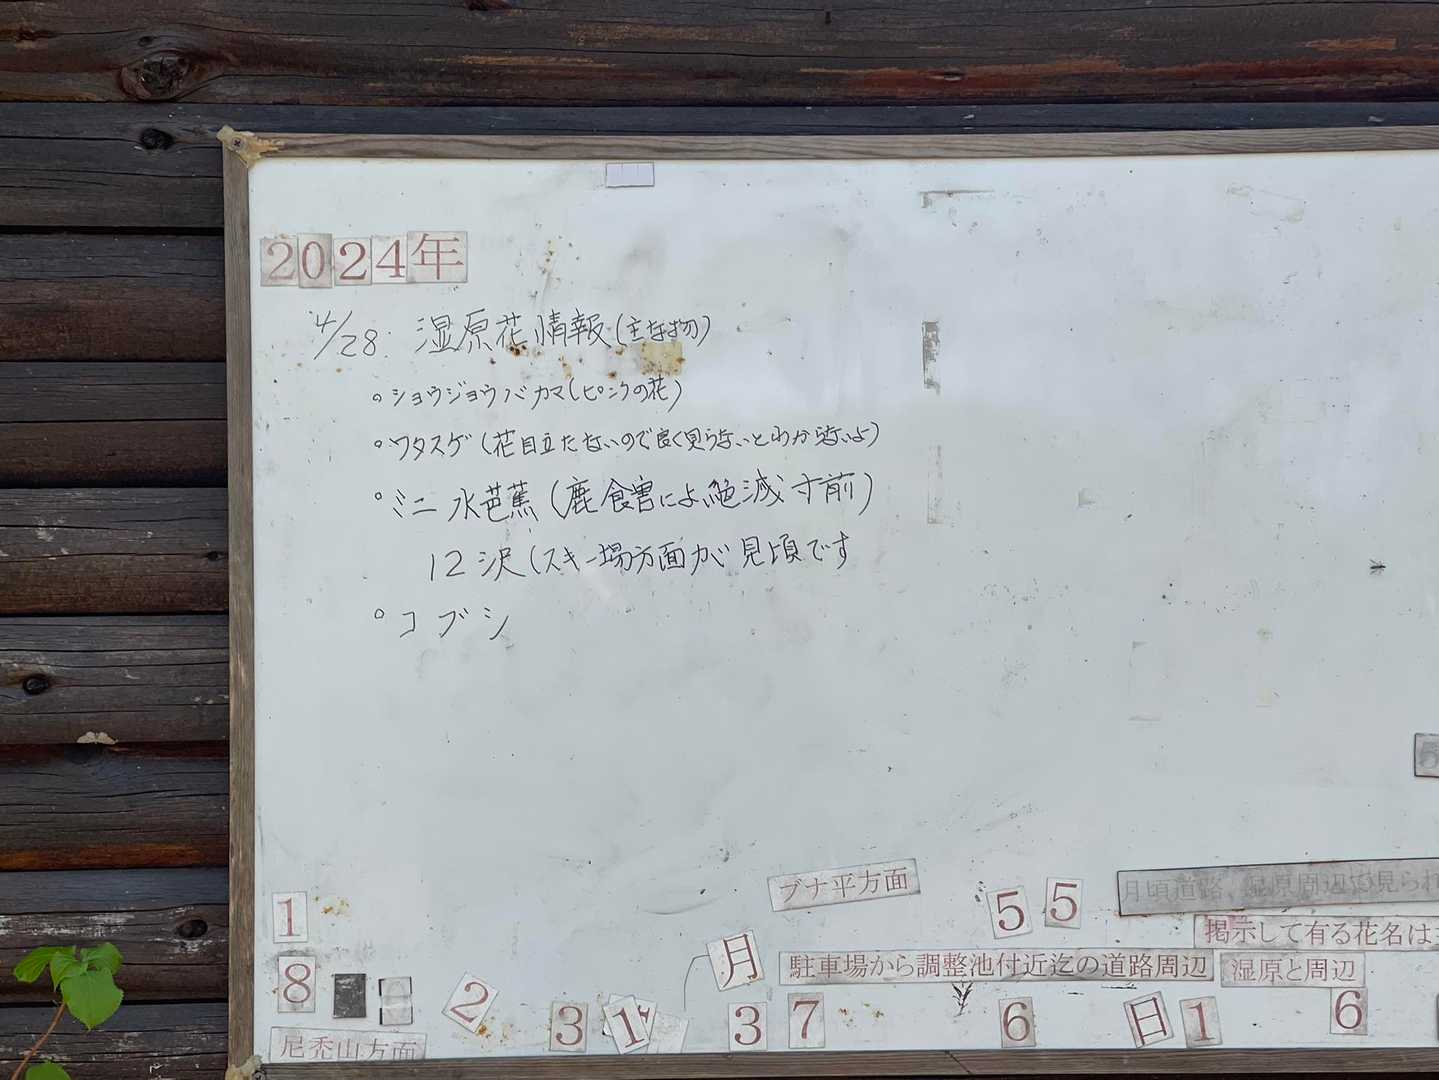 2024年
4/28. 湿原花情報(主な物)
○ショウジョウバカマ(ピンクの花)
○ワタスゲ(花目立たないので良く見ないとわからないよ)
○ミニ水芭蕉(鹿食害によ絶滅寸前)
12沢(スキー場方面が見頃です
○コブシ
ブナ平方面
5 5
月頃道路、湿原周辺で見られ
1
掲示して有る花名は
月
駐車場から調整池付近迄の道路周辺
湿原と周辺
8
2
3
1
3
7
6
日
1
6
尼禿山方面
5